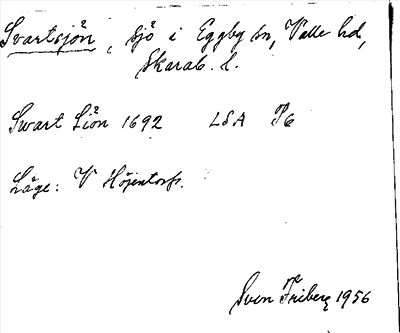 Svartsjön, sjö i Eggby sn, Valle hd,
Skarab. l.
Swart Siön 1692 LSA P6
Läge: V Höjentorp.
Sven Friberg 1956